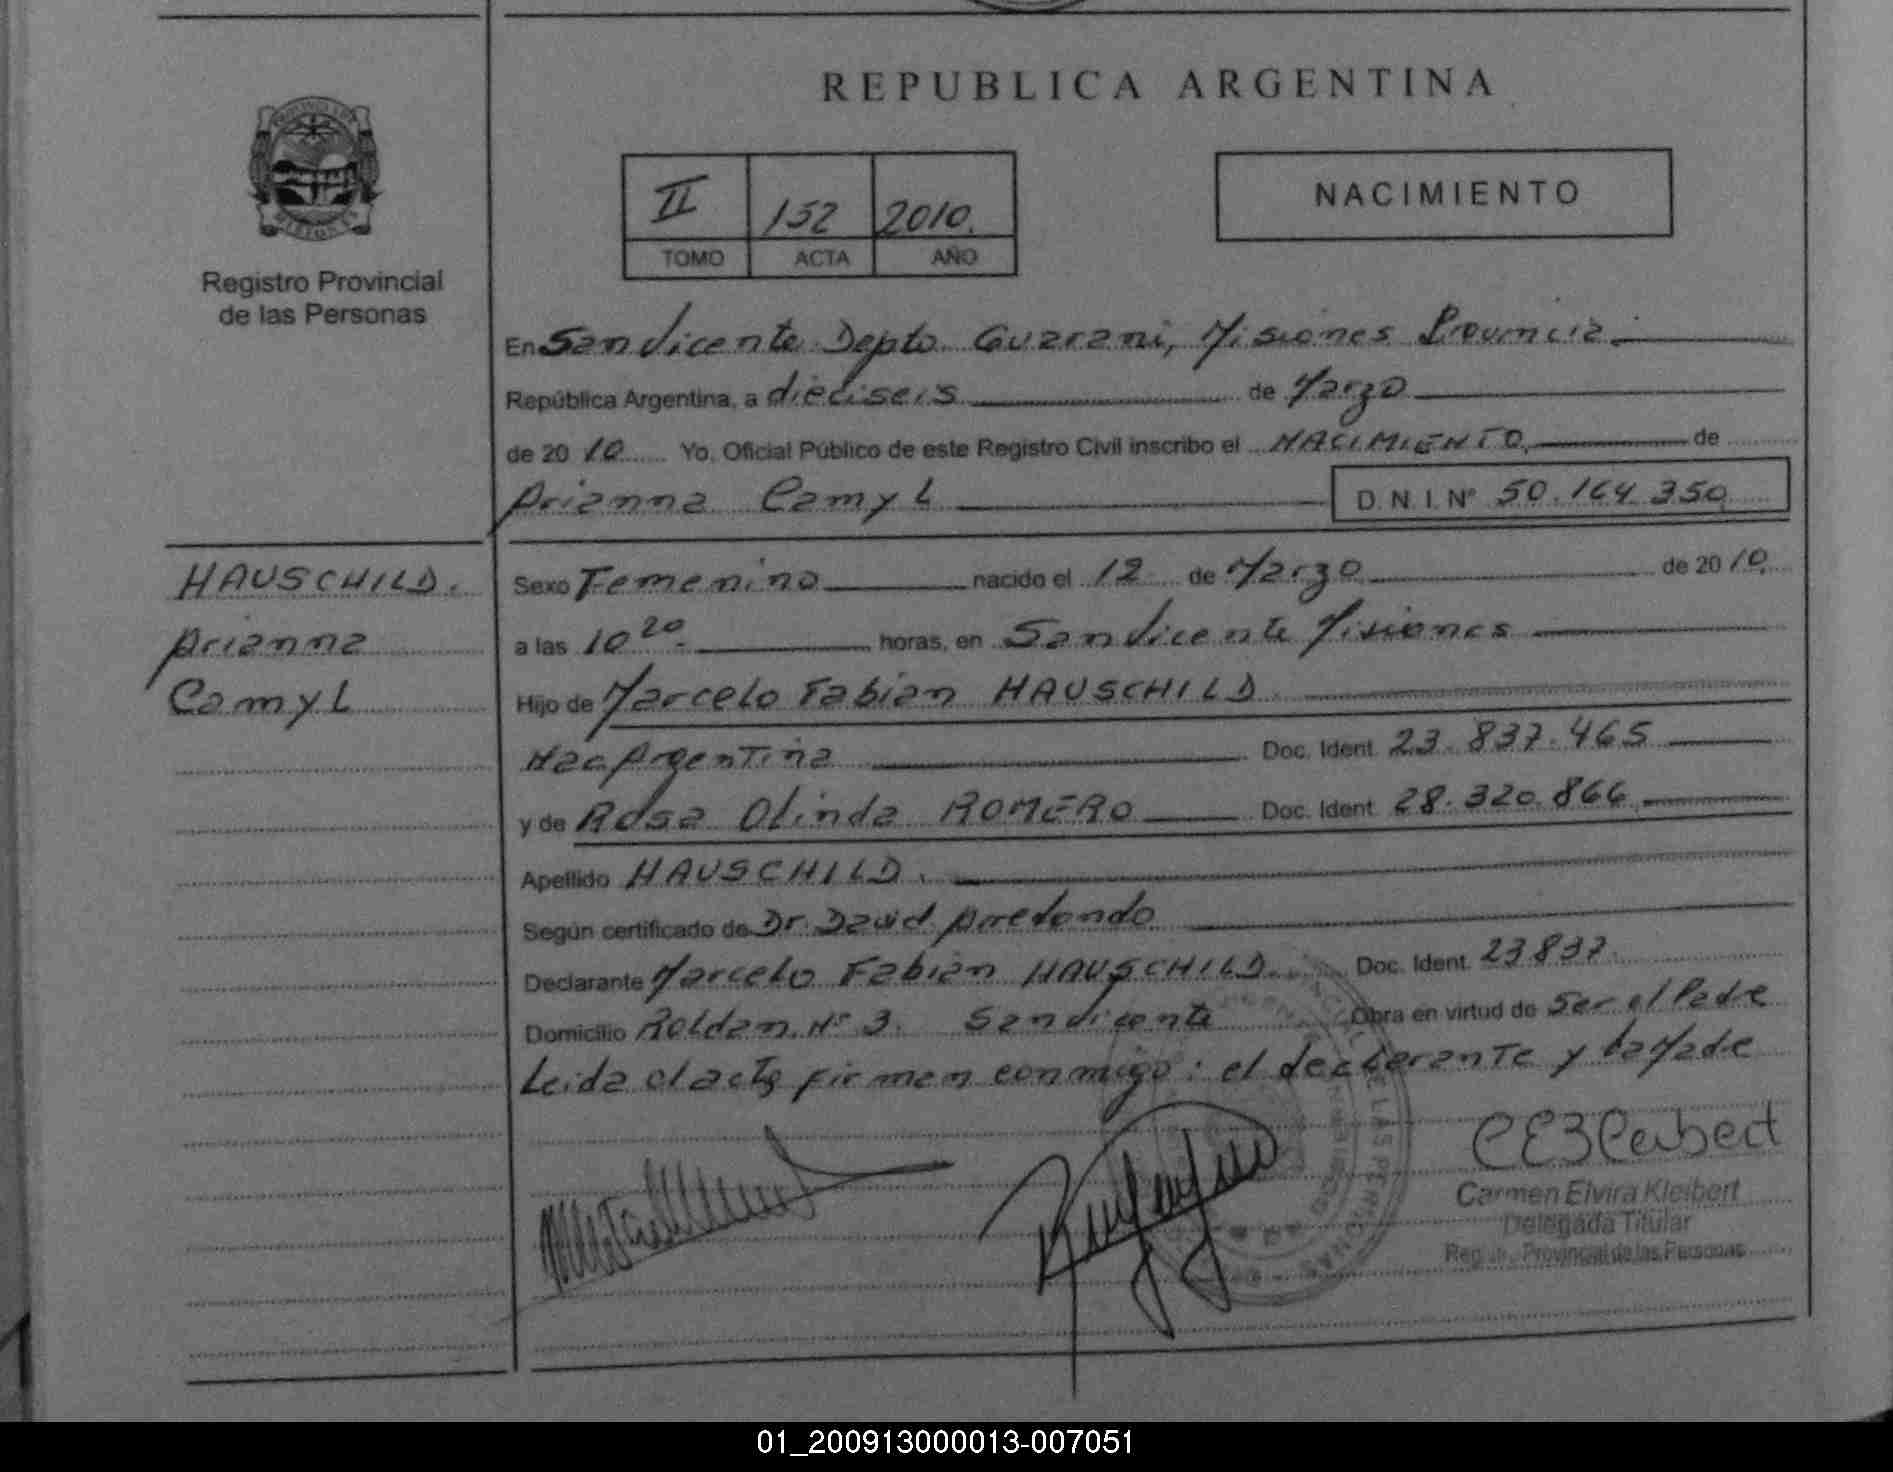 REPUBLICA ARGENTINA
II 152 2010.
TOMO ACTA AÑO
NACIMIENTO
Registro Provincial
de las Personas
En San Vicente Depto Guarani, Misiones Provincia.
República Argentina, a dieciseis de Marzo
de 2010 Yo, Oficial Público de este Registro Civil inscribo el NACIMIENTO de
Arianna Camyl D. N. I. Nº 50.164.350
HAUSCHILD.
Arianna
Camyl
Sexo Femenino nacido el 12 de Marzo de 2010.
a las 10 20 horas, en San Vicente Misiones
Hijo de Marcelo Fabian HAUSCHILD
Nac Argentina Doc. Ident. 23.837.465
y de Rosa Olinda ROMERO Doc. Ident. 28.320.866
Apellido HAUSCHILD.
Según certificado de Dr. David Arredondo
Declarante Marcelo Fabian HAUSCHILD Doc. Ident. 23837.
Domicilio Roldan Nº 3. San Vicente Obra en virtud de Ser el Padre
Leida el acta firman conmigo: el declarante y la Madre
DE LAS PERSONAS
Carmen Elvira Kleibert
Delegada Titular
Provincial de las Personas
01_200913000013-007051